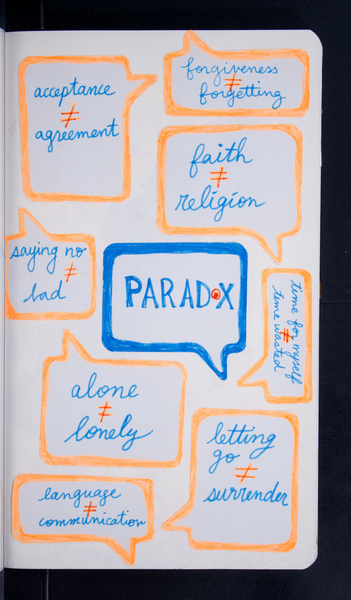 acceptance
≠
agreement
forgiveness
≠
forgetting
faith
≠
religion
saying no
≠
bad
PARADOX
time for myself
≠
time wasted
alone
≠
lonely
letting
go
≠
surrender
language
≠
communication